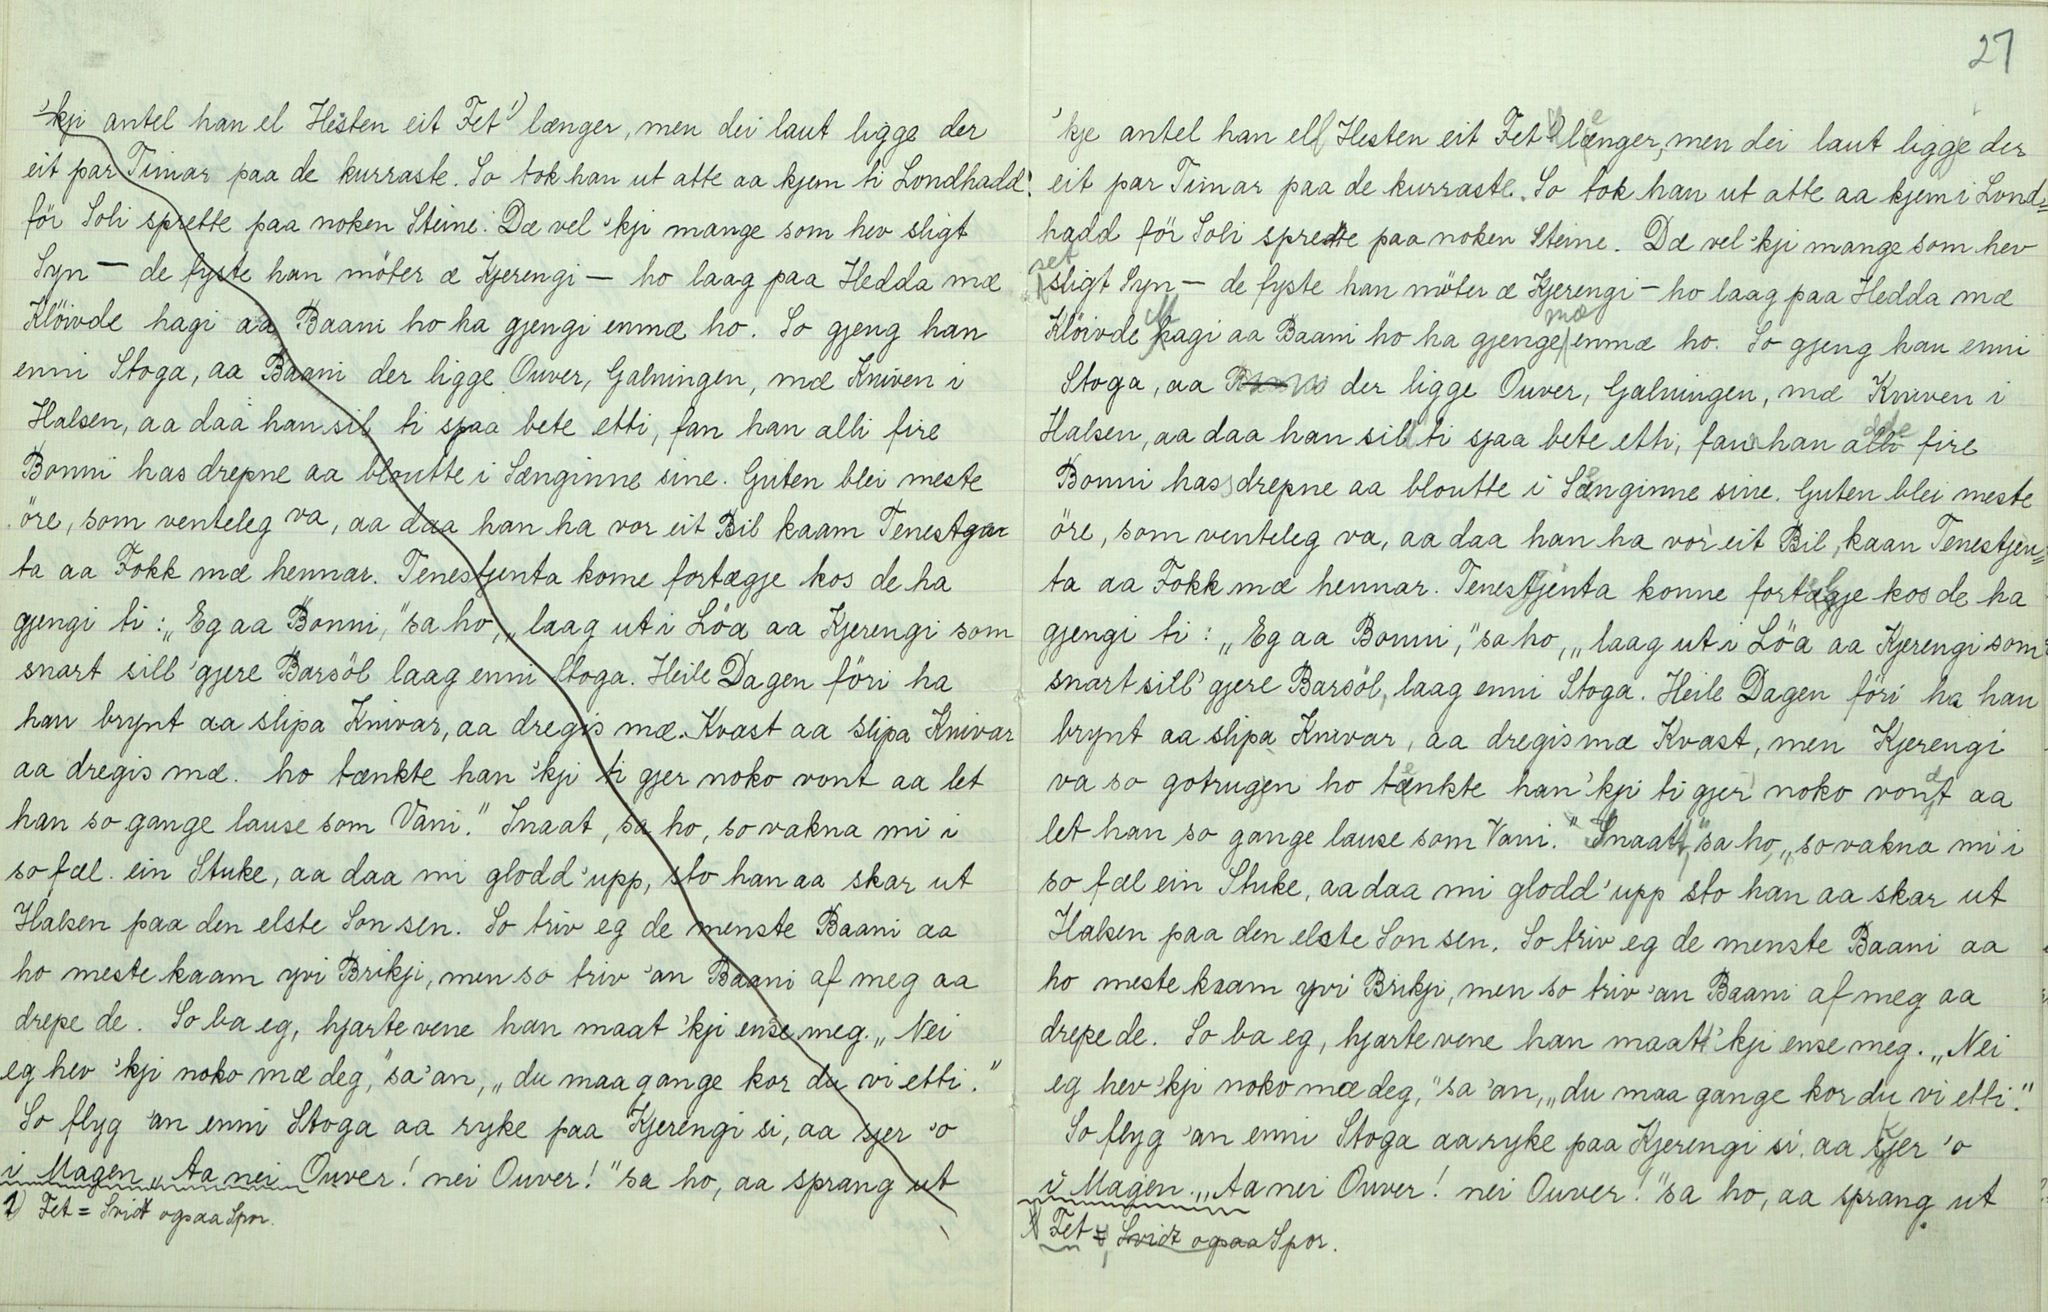 'kji antel han el Hesten eit Fet 1) længer, men dei laut ligge der
eit par Timar paa de kurraste. So tok han ut atte aa kjem ti Londhadd
för Soli sprette paa noken Steine. Dæ vel 'kji mange som hev sligt
Syn — de fyste han möter æ Kjerengi — ho laag paa Hedda mæ
Klöivde hagi aa Baani ho ha gjengi enmæ ho. So gjeng han
enni Stoga, aa Baani der ligge Ouver, Galningen, mæ Kniven i
Halsen, aa daa han sil ti sjaa bete etti, fan han alli fire
Bonni has drepne aa bloutte i Sænginne sine. Guten blei meste
öre, som venteleg va, aa daa han ha vor eit Bil kaam Tenestgen-
ta aa Fokk mæ hennar. Tenestjenta kome fortægje kos de ha
gjengi ti: „Eg aa Bonni," sa ho, „laag ut i Löa aa Kjerengi som
snart sill 'gjere Barsöl laag enni Stoga. Heile Dagen föri ha
han brynt aa slipa Knivar, aa dregis mæ. Kvast aa slipa Knivar
aa dregis mæ. ho tænkte han 'kji ti gjer noko vont aa let
han so gange lause som Vani." Snaat, sa ho, so vakna mi i
so fæl ein Stuke, aa daa mi glodd' upp, sto han aa skar ut
Halsen paa den elste Son sen. So triv eg de menste Baani aa
ho meste kaam yvi Brikji, men so triv 'an Baani af meg aa
drepe de. So ba eg, hjarte vene han maat 'kji ense meg. „Nei
eg hev 'kji noko mæ deg," sa 'an, „du maa gange kor du vi etti."
So flyg 'an enni Stoga aa ryke paa Kjerengi si, aa sjer 'o
i Magen „Aa nei Ouver! nei Ouver!" sa ho, aa sprang ut
1) Fet = Svidt ogsaa Spor.
27
'kje antel han ell Hesten eit Fet 1) længer, men dei laut ligge der
eit par Timar paa de kurraste. So tok han ut atte aa kjem i Lond=
hadd för Soli sprette paa noken Steine. Dæ vel 'kji mange som hev
set
sligt Syn — de fyste han möter æ Kjerengi — ho laag paa Hedda mæ
mæ
Klöivde hagi aa Baani ho ha gjenge enmæ ho. So gjeng han enni
Stoga, aa der ligge Ouver, Galningen, mæ Kniven i
Halsen, aa daa han sill ti sjaa bete etti, fan han alli fire
Bonni has drepne aa bloutte i Sænginne sine. Guten blei meste
öre, som venteleg va, aa daa han ha vor eit Bil, kaan Tenestjen=
ta aa Fokk mæ hennar. Tenestjenta konne fortægje kos de ha
gjengi ti: „Eg aa Bonni," sa ho, „laag ut i Löa aa Kjerengi som
snart sill' gjere Barsöl, laag enni Stoga. Heile Dagen föri ha han
brynt aa slipa Knivar, aa dregis mæ Kvast, men Kjerengi
va so gotrugen ho tænkte han 'kji ti gjer noko vondt aa
let han so gange lause som Vani." Snaatt, "sa ho, „so vakna mi i
so fæl ein Stuke, aa daa mi glodd' upp sto han aa skar ut
Halsen paa den elste Son sen. So triv eg de menste Baani aa
ho meste kaam yvi Brikji, men so triv 'an Baani af meg aa
drepe de. So ba eg, hjarte vene han maatt 'kji ense meg. „Nei
eg hev 'kji noko mæ deg," sa 'an, „du maa gange kor du vi etti."
So flyg 'an enni Stoga aa ryke paa Kjerengi si, aa sjer 'o
i Magen. „Aa nei Ouver! nei Ouver!" sa ho, aa sprang ut
1) Fet = Svidt ogsaa Spor.